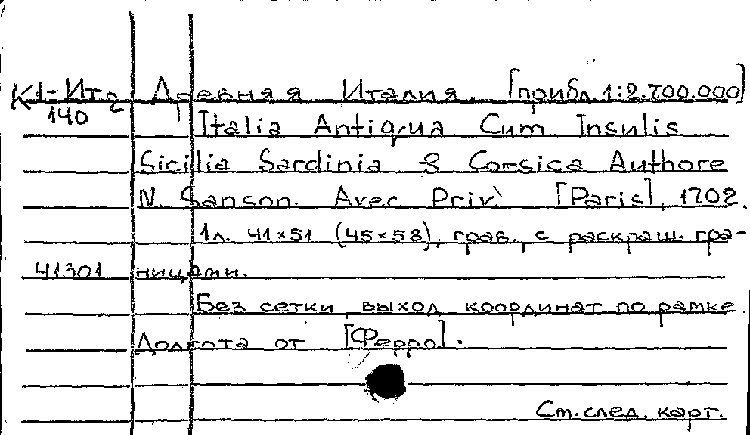 К1-Ит2 Древняя Италия. [прибл. 1:2.700.000]
140 Italia Antiqua Cum Insulis
Sicilia Sardinia & Corsica Authore
N. Sanson. Avec Priv. [Paris], 1702.
1л. 41×51 (45×58), грав., с раскраш. гра-
41301 ницами.
Без сетки, выход координат по рамке.
Долгота от [Ферро].
См. след. карт.